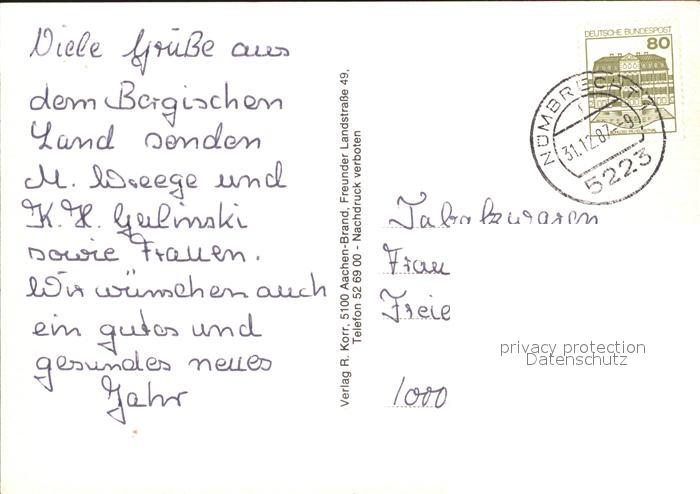 Viele Grüße aus
dem Bergischen
Land senden
M. Weege und
K. H. Gulinski
sowie Frauen.
Wir wünschen auch
ein gutes und
gesundes neues
Jahr
Verlag R. Korr, 5100 Aachen-Brand, Freunder Landstraße 49,
Telefon 52 69 00 - Nachdruck verboten
DEUTSCHE BUNDESPOST
80
NÜMBRECHT 1
31.12.87-9
5223
Tabakwaren
Frau
Freie
1000
privacy protection
Datenschutz